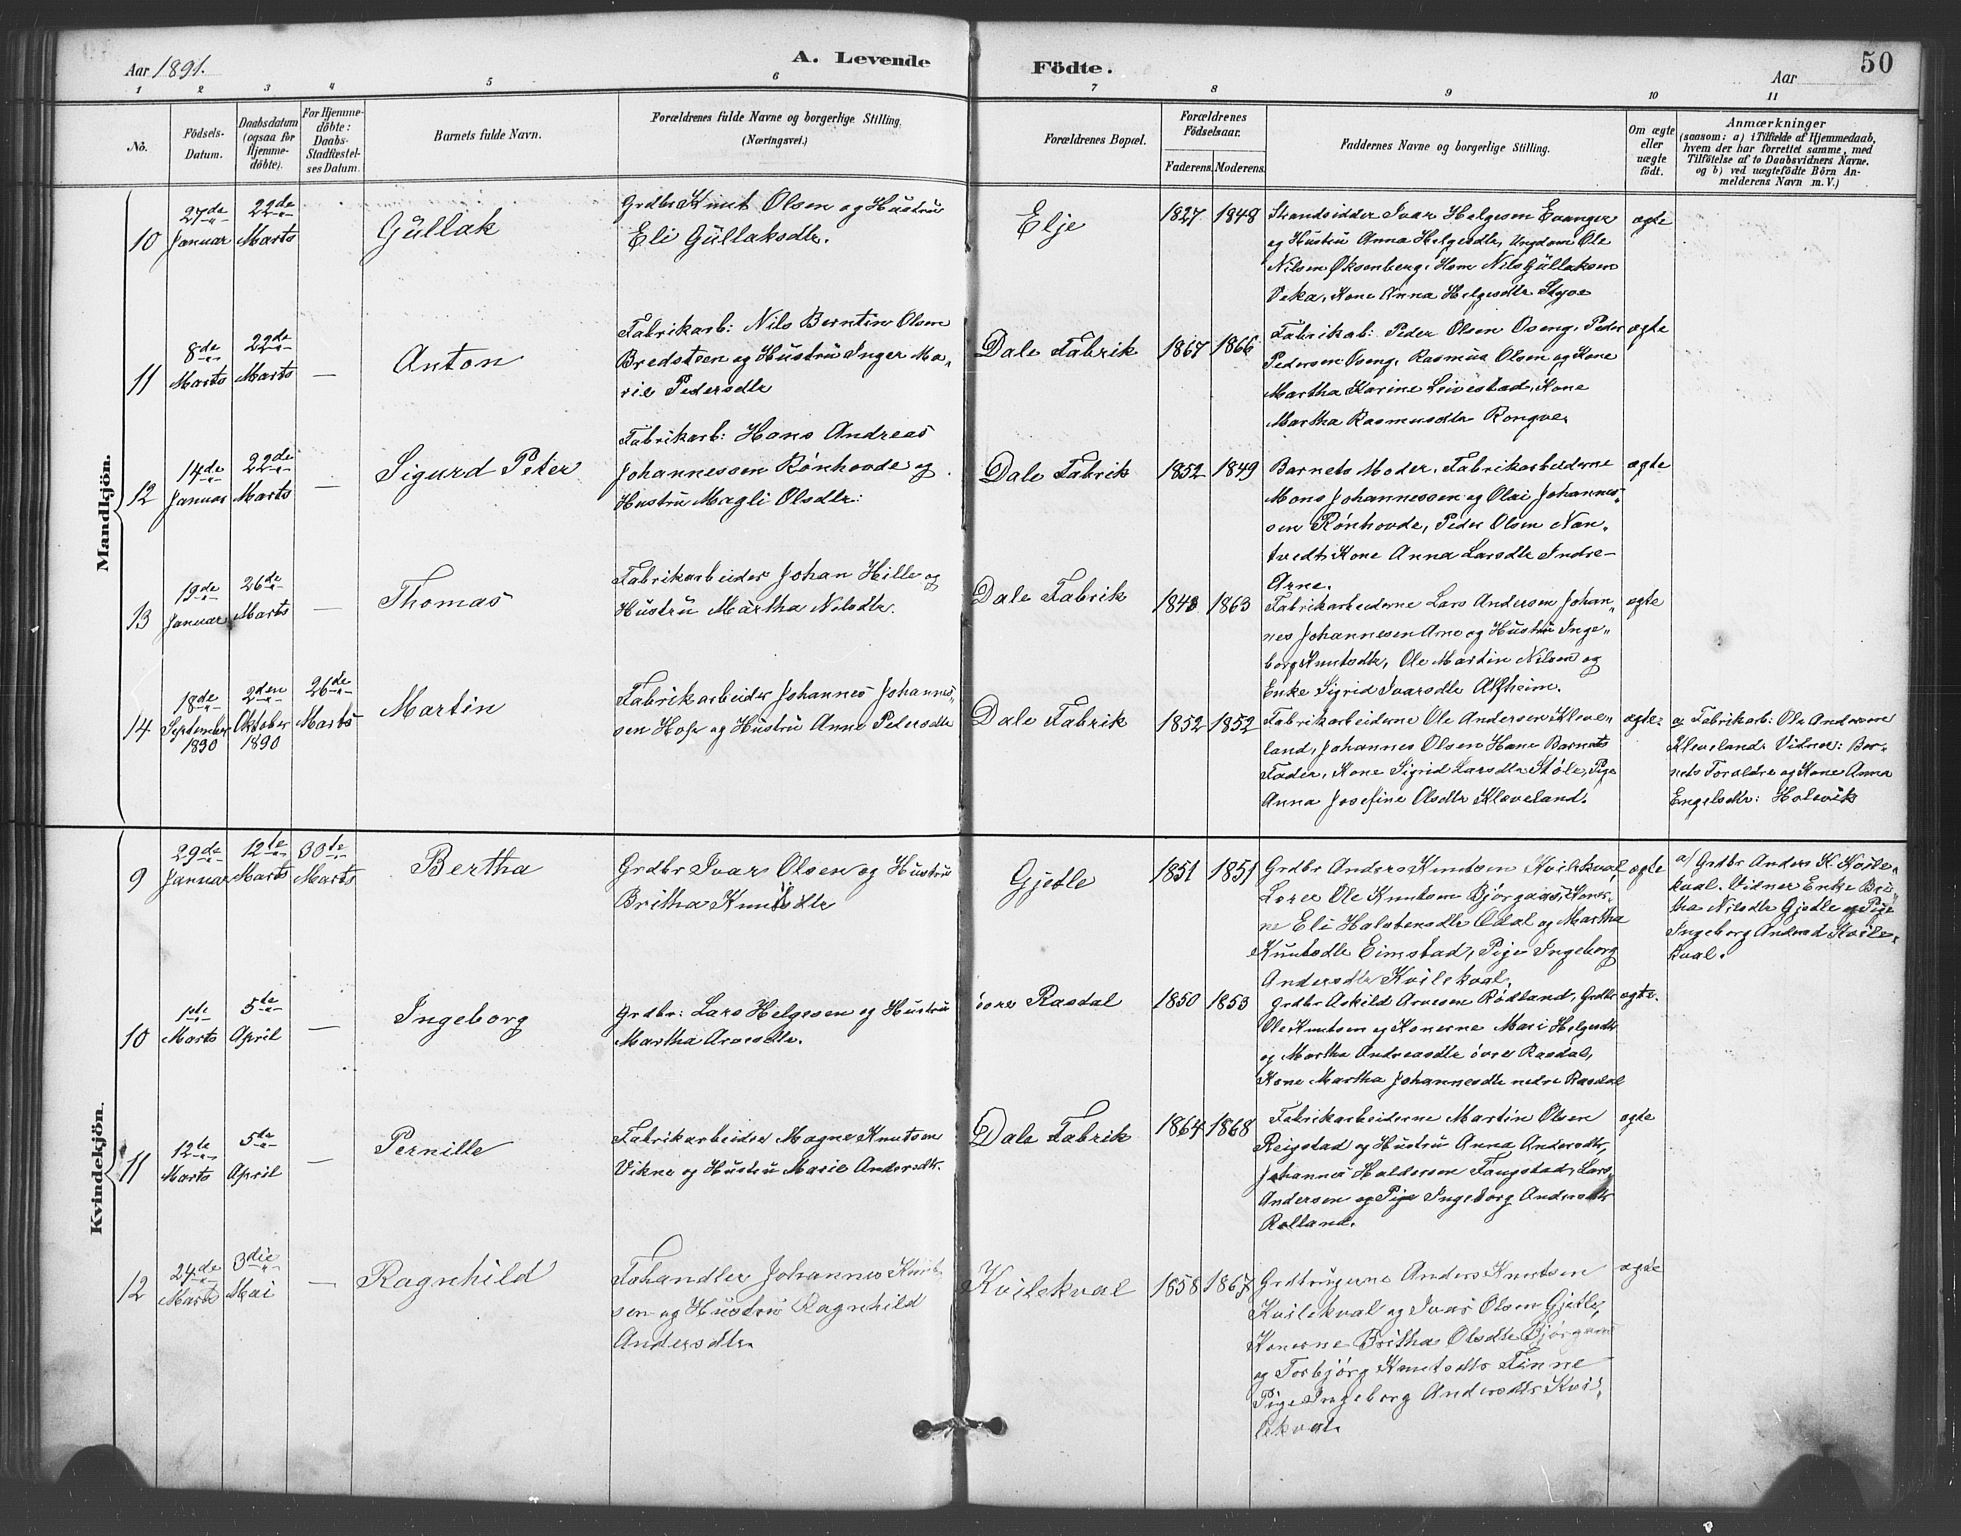 50
Aar 1891.
A. Levende Födte.
Aar
1 2 3 4 5 6 7 8 9 10 11
No.
Födsels-
Datum.
Daabsdatum
(ogsaa for
Hjemme-
döbte).
For Hjemme-
döbte:
Daabs-
Stadfæstel-
ses Datum.
Barnets fulde Navn.
Forældrenes fulde Navne og borgerlige Stilling.
(Næringsvei.)
Forældrenes Bopæl.
Forældrenes
Födselsaar.
Faderens. Moderens.
Faddernes Navne og borgerlige Stilling.
Om ægte
eller
uægte
födt.
Anmærkninger
(saasom: a) i Tilfælde af Hjemmedaab,
hvem der har forrettet samme, med
Tilföielse af to Daabsvidners Navne.
og b) ved uægtefödte Börn An-
melderens Navn m. V.)
Mandkjön.
10
27de
Januar
22de
Marts
Gullak
Grdbr Knut Olsen og Hustru
Eli Gullaksdtr.
Elje
1827 1848
Strandsidder Ivar Helgesen Evanger
og Hustru Anna Helgesdtr, Ungdom Ole
Nilsen Øksenberg, Hsm Nils Gullaksen
Veka, Kone Anna Helgesdtr Styve
ægte
11
8de
Marts
22de
Marts
—
Anton
Fabrikarb: Nils Berntin Olsen
Bredsteen og Hustru Inger Ma-
rie Pedersdtr
Dale Fabrik
1867 1866
Fabrikab: Peder Olsen Oseng, Peder
Pedersen Oseng, Rasmus Olsen og Kone
Martha Karine Leivestad, Kone
Martha Rasmusdtr Rongve.
ægte
12
14de
Januar
22de
Marts
—
Sigurd Peter
Fabrikarb: Hans Andreas
Johannessen Rønhovde og
Hustru Magli Olsdtr.
Dale Fabrik
1852 1849
Barnets Moder, Fabrikarbeiderne
Mons Johannessen og Olai Johannes-
sen Rønhovde, Peder Olsen Nan-
tvedt, Kone Anna Larsdtr Indre-
Arne.
ægte
13
19de
Januar
26de
Marts
—
Thomas
Fabrikarbeider Johan Hille og
Hustru Martha Nilsdtr.
Dale Fabrik
1843 1863
Fabrikarbeiderne Lars Andersen Johan-
nes Johannesen Arne og Hustru Inge-
borg Knutsdtr, Ole Martin Nilsen og
Enke Sigrid Ivarsdtr Alfheim.
ægte
14
18de
September
1890
2den
Oktober
1890
26de
Marts
Martin
Fabrikarbeider Johannes Johannes-
sen Hope og Hustru Anne Pedersdtr
Dale Fabrik
1852 1852
Fabrikarbeiderne Ole Andersen Kleve-
land, Johannes Olsen Hane Barnets
Fader, Kone Sigrid Larsdtr Støle, Pige
Anna Josefine Olsdtr Kleveland.
ægte.
a, Fabrikarb: Ole Andersen
Kleveland. Vidner: Bar-
nets Forældre og Kone Anna
Engelsdtr: Holevik
Kvindekjön.
9
29de
Januar
12te
Marts
30te
Marts
Bertha
Grdbr Ivar Olsen og Hustru
Britha Knutsdtr
Gjetle
1851 1851
Grdbr Anders Knutsen Kvilekval
Lærer Ole Knutsen Bjørgaas, Koner-
ne Eli Halstensdtr Odal og Martha
Knutsdtr Eimstad, Pige Ingeborg
Andersdtr Kvilekval.
ægte
a) Grdbr Anders K. Kvile-
kval. Vidner Enke Bri-
tha Nilsdtr Gjetle og Pige
Ingeborg Andersd Kvile-
kval.
10
1ste
Marts
5te
April
—
Ingeborg
Grdbr: Lars Helgesen og Hustru
Martha Arnesdtr.
øvre Rasdal
1850 1853
Grdbr Askild Arnesen Rødland, Grdbr
Ole Knutsen og Konerne Mari Helgesdtr
og Martha Andreasdtr øvre Rasdal,
Kone Martha Johannesdtr nedre Rasdal
ægte.
11
12te
Marts
5te
April
—
Pernille
Fabrikarbeider Magne Knutsen
Vikne og Hustru Marie Andersdtr.
Dale Fabrik
1864 1868
Fabrikarbeiderne Martin Olsen
Reigstad og Hustru Anna Andersdtr,
Johannes Haldorsen Fangstad, Lars
Andersen og Pige Ingeborg Andersdtr
Rolland.
ægte
12
24de
Marts
3die
Mai
—
Ragnhild
Fohandler Johannes Knut-
sen og Hustru Ragnhild
Andersdtr.
Kvilekval
1858 1867
Grdbrugerne Anders Knutsen
Kvilekval og Ivar Olsen Gjetle,
Konerne Britha Olsdtr Bjørgaas
og Torbjørg Knutsdtr Finne
Pige Ingeborg Andersdtr Kvi-
lekval.
ægte